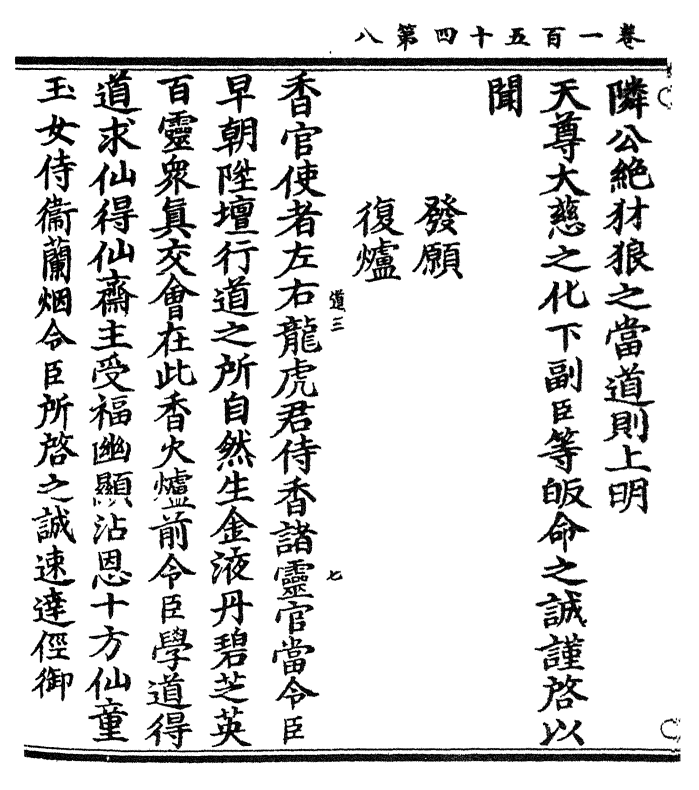 卷一百五十四第八
隣公絶犲狼之當道則上明
天尊大慈之化下副臣等皈命之誠謹啓以
聞
發願
復爐
道三
七
香官使者左右龍虎君侍香諸靈官當令臣
早朝陞壇行道之所自然生金液丹碧芝英
百靈衆眞交會在此香火爐前令臣學道得
道求仙得仙齋主受福幽顯沾恩十方仙童
玉女侍衞蘭烟令臣所啓之誠速達徑御